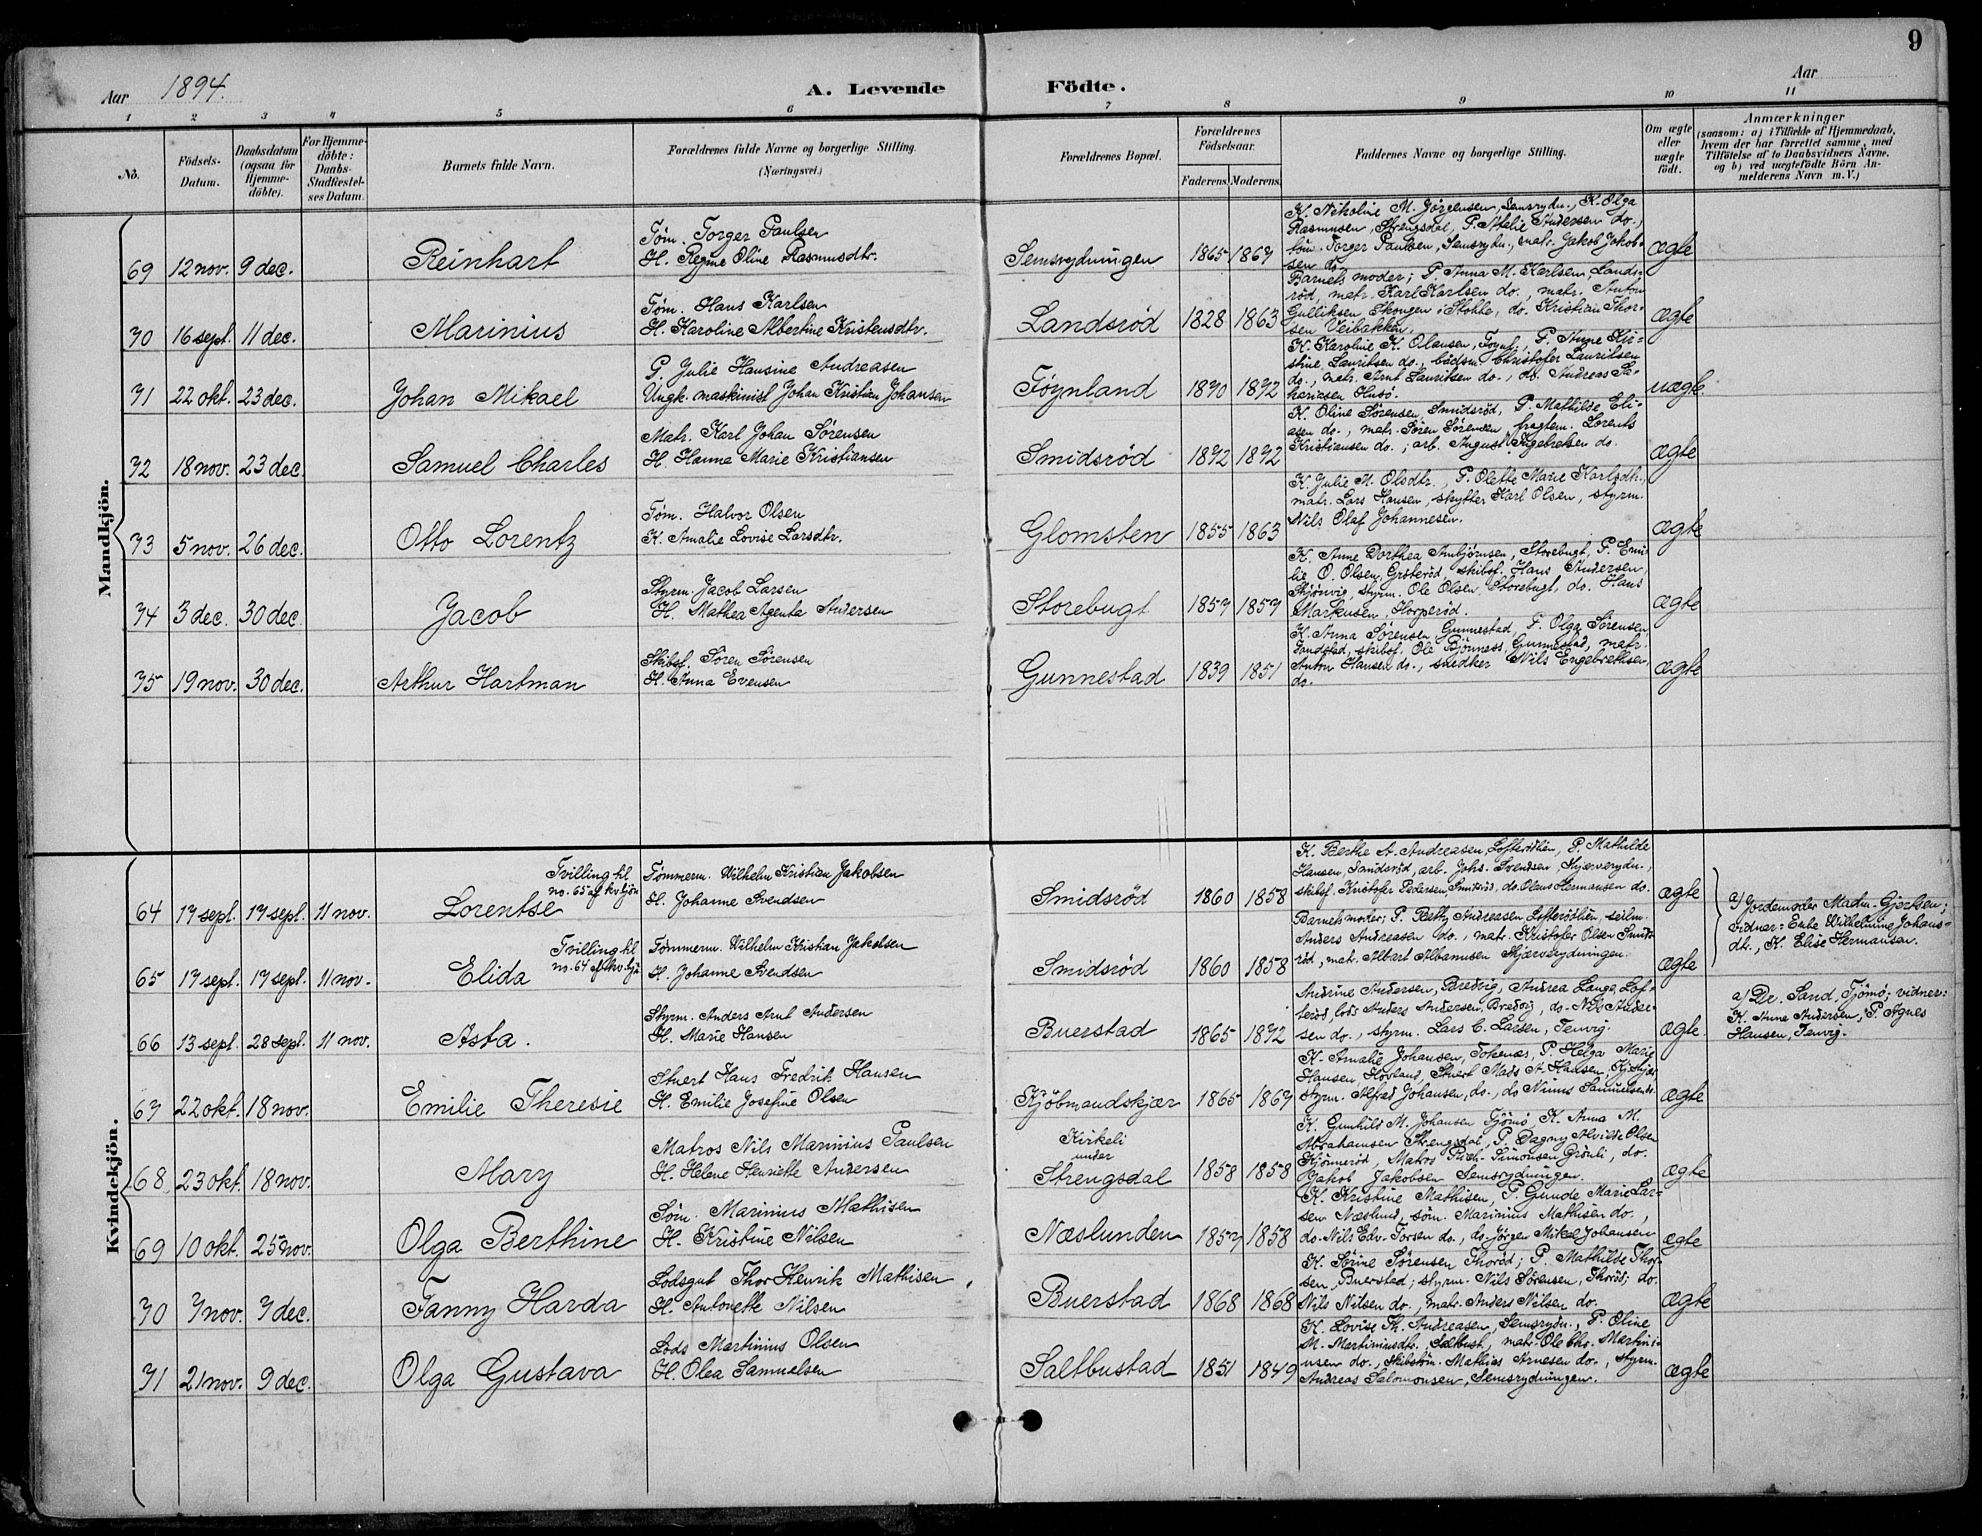 9
Aar 1894. A. Levende Födte. Aar
1 2 3 4 5 6 7 8 9 10 11
No.
Födsels-Datum.
Daabsdatum (ogsaa for Hjemme-döbte).
For Hjemme-döbte: Daabs-Stadfæstel-ses Datum.
Barnets fulde Navn.
Forældrenes fulde Navne og borgerlige Stilling. (Næringsvei.)
Forældrenes Bopæl.
Forældrenes Födselsaar.
Faderens. Moderens.
Faddernes Navne og borgerlige Stilling.
Om ægte eller uægte födt.
Anmærkninger
(saasom: a) i Tilfælde af Hjemmedaab,
hvem der har forrettet samme, med
Tilföielse af to Daabsvidners Navne.
og b) ved uægtefödte Börn An-
melderens Navn m. V.)
Mandkjön.
69 12 nov. 9 dec. Reinhart
Tøm. Torger Paulsen
H. Regine Oline Rasmusdtr.
Semsrydningen 1865 1867
K. Nikoline M. Jørgensen, Semsrydn., K. Olga
Rasmussen, Strengsdal, P. Athalie Andersen do.,
tøm. Torger Paulsen, Semsrydn., matr. Jakob Jakob-
sen do.
ægte
70 16 sept. 11 dec. Marinius
Tøm. Hans Karlsen
H. Karoline Albertine Kristensdtr.
Landsrød 1828 1863
Barnets moder; P. Anna M. Karlsen Lands-
rød, matr. Karl Karlsen do., matr. Anton
Gulliksen Skougen i Stokke, do. Kristian Thor-
sen Veibakken.
ægte
71 22 okt. 23 dec. Johan Mikael
P. Julie Hansine Andreasen
Ungk. maskinist Johan Kristian Johansen
Føynland 1870 1872
K. Karoline K. Olausen, Føynl., P. Anne Kir-
stine Lauritsen do., bådsm. Christofer Lauritsen
do., matr. Arnt Lauritsen do., do. Andreas Za-
hariasen Husø.
uægte
72 18 nov. 23 dec. Samuel Charles
Matr. Karl Johan Sørensen
H. Hanna Marie Kristiansen
Smidsrød 1872 1872
K. Oline Sørensen, Smidsrød, P. Mathilde Eli-
asen do., matr. Søren Sørensen, fragtem. Lorents
Kristiansen do., arb. August Ingebretsen do.
ægte
73 5 nov. 26 dec. Otto Lorentz
Tøm. Halvor Olsen
K. Amalie Lovise Larsdtr.
Glomsten 1855 1863
K. Julie M. Olsdtr., P. Olette Marie Karlsdtr.,
matr. Lars Hansen, skytter Karl Olsen, styrm.
Nils Olaf Johannesen.
ægte
74 3 dec. 30 dec. Jacob
Styrm Jacob Larsen
H. Mathea Agenta Andersen
Storebugt 1857 1857
K. Anne Dorthea Anbjørnsen, Storebugt, P. Emi-
lie O. Olsen, Grøterød, skibsf. Hans Andersen,
Skjønvig, styrm. Ole Olsen, Storebugt, do. Hans
Markusen, Horperød.
ægte
75 19 nov. 30 dec. Arthur Hartman
Skibsf. Søren Sørensen
H. Anna Evensen
Gunnestad 1839 1851
K. Anna Sørensen, Gunnestad, P. Olga Sørensen,
Sandstad, skibsf. Ole Bjønness, Gunnestad, matr.
Anton Hansen do., snedker Nils Engebrethsen
do.
ægte
Kvindekjön.
64 17 sept. 17 sept. 11 nov. Lorentse
Tvilling til no. 65 af kv.kjøn
Tømmerm. Wilhelm Kristian Jakobsen
H. Johanne Svendsen
Smidsrød 1860 1858
K. Berthe A. Andreasen, Lofterødhøn, P. Mathilde
Hansen, Sandsrød, arb. Johs. Svendsen, Skjærverydn.,
skibsf. Kristofer Pedersen Smidsrød, do. Olaus Hermansen do.
ægte
a) Jordemoder Madm. Gjertsen;
vidner: Enke Wilhelmine Johans-
dt., K. Elise Hermansen.
65 17 sept. 17 sept. 11 nov. Elida
Tvilling til no. 64 af kv.kjøn
Tømmerm. Wilhelm Kristian Jakobsen
H. Johanne Svendsen
Smidsrød 1860 1858
Barnets moder; P. Beth. Andreasen, Lofterødhøn, seilm.
Anders Andreasen do., matr. Kristofer Olsen Smids-
rød, mat. Albert Albanusen Skjærverydningen.
ægte
66 13 sept. 28 sept. 11 nov. Asta.
Styrm. Anders Arnt Andersen
H. Marie Hansen
Buerstad 1865 1872
Andrine Andersen, Bredvig, Andrea Lange, Lof-
terød, lods Anders Andersen, Bredvig, do. Nils Ander-
sen do., styrm. Lars C. Larsen, Tenvig.
ægte
a) Dr. Sand, Tjømø; vidner:
K. Anne Andersen, P. Agnes
Hansen, Tenvig.
67 22 okt. 18 nov. Emilie Theresie
Stuert Hans Fredrik Hansen
H. Emilie Josefine Olsen
Kjøbmandskjær 1865 1867
K. Amalie Johansen, Tokenæs, P. Helga Marie
Hansen Hovland, Stuert Mads A. Hansen, Kj.skjær,
styrm. Alfred Johansen, do., do. Ninus Samuelsen do.
ægte
68 23 okt. 18 nov. Mary
Matros Nils Marinius Paulsen
H. Helene Henriette Andersen
Kirkeli
under
Strengsdal 1858 1858
K. Gunhild M. Johansen Tjømø, K. Anna M.
Abrahamsen Strengsdal, P. Dagny Alvilde Olsen
Kjønnerød, Matros Rich. Simonsen Grønli, do.
Jakob Jakobsen Semsrydningen.
ægte
69 10 okt. 25 nov. Olga Berthine
Søm. Marinius Mathisen
H. Kristine Nilsen
Næslunden 1857 1858
K. Kristine Mathisen, P. Gunde Marie Lar-
sen Næslund, søm. Marinius Mathisen do.,
do. Nils Edv. Torsen do., do. Jörgen Mikal Johansen
ægte
70 7 nov. 7 dec. Fanny Harda
Lodsgut Thor Henrik Mathisen
H. Antonette Nilsen
Buerstad 1868 1868
K. Sørine Sørensen Thorød; P. Mathilde Thor-
sen, Buerstad; styrm. Nils Sørensen, Thorød; do.
Nils Nilsen do., matr. Anders Nilsen do.
ægte
71 21 nov. 9 dec. Olga Gustava
Lods Martinius Olsen
H. Olea Samuelsen
Saltbustad 1851 1849
K. Lovise Th. Andreasen, Semsrydn., P. Oline
M. Martiniusdt., Saltbust., matr. Ole Chr. Martini-
usen do., Skibstøm. Mathias Arnesen do., styrm.
Andreas Salomonsen, Semsrydningen.
ægte